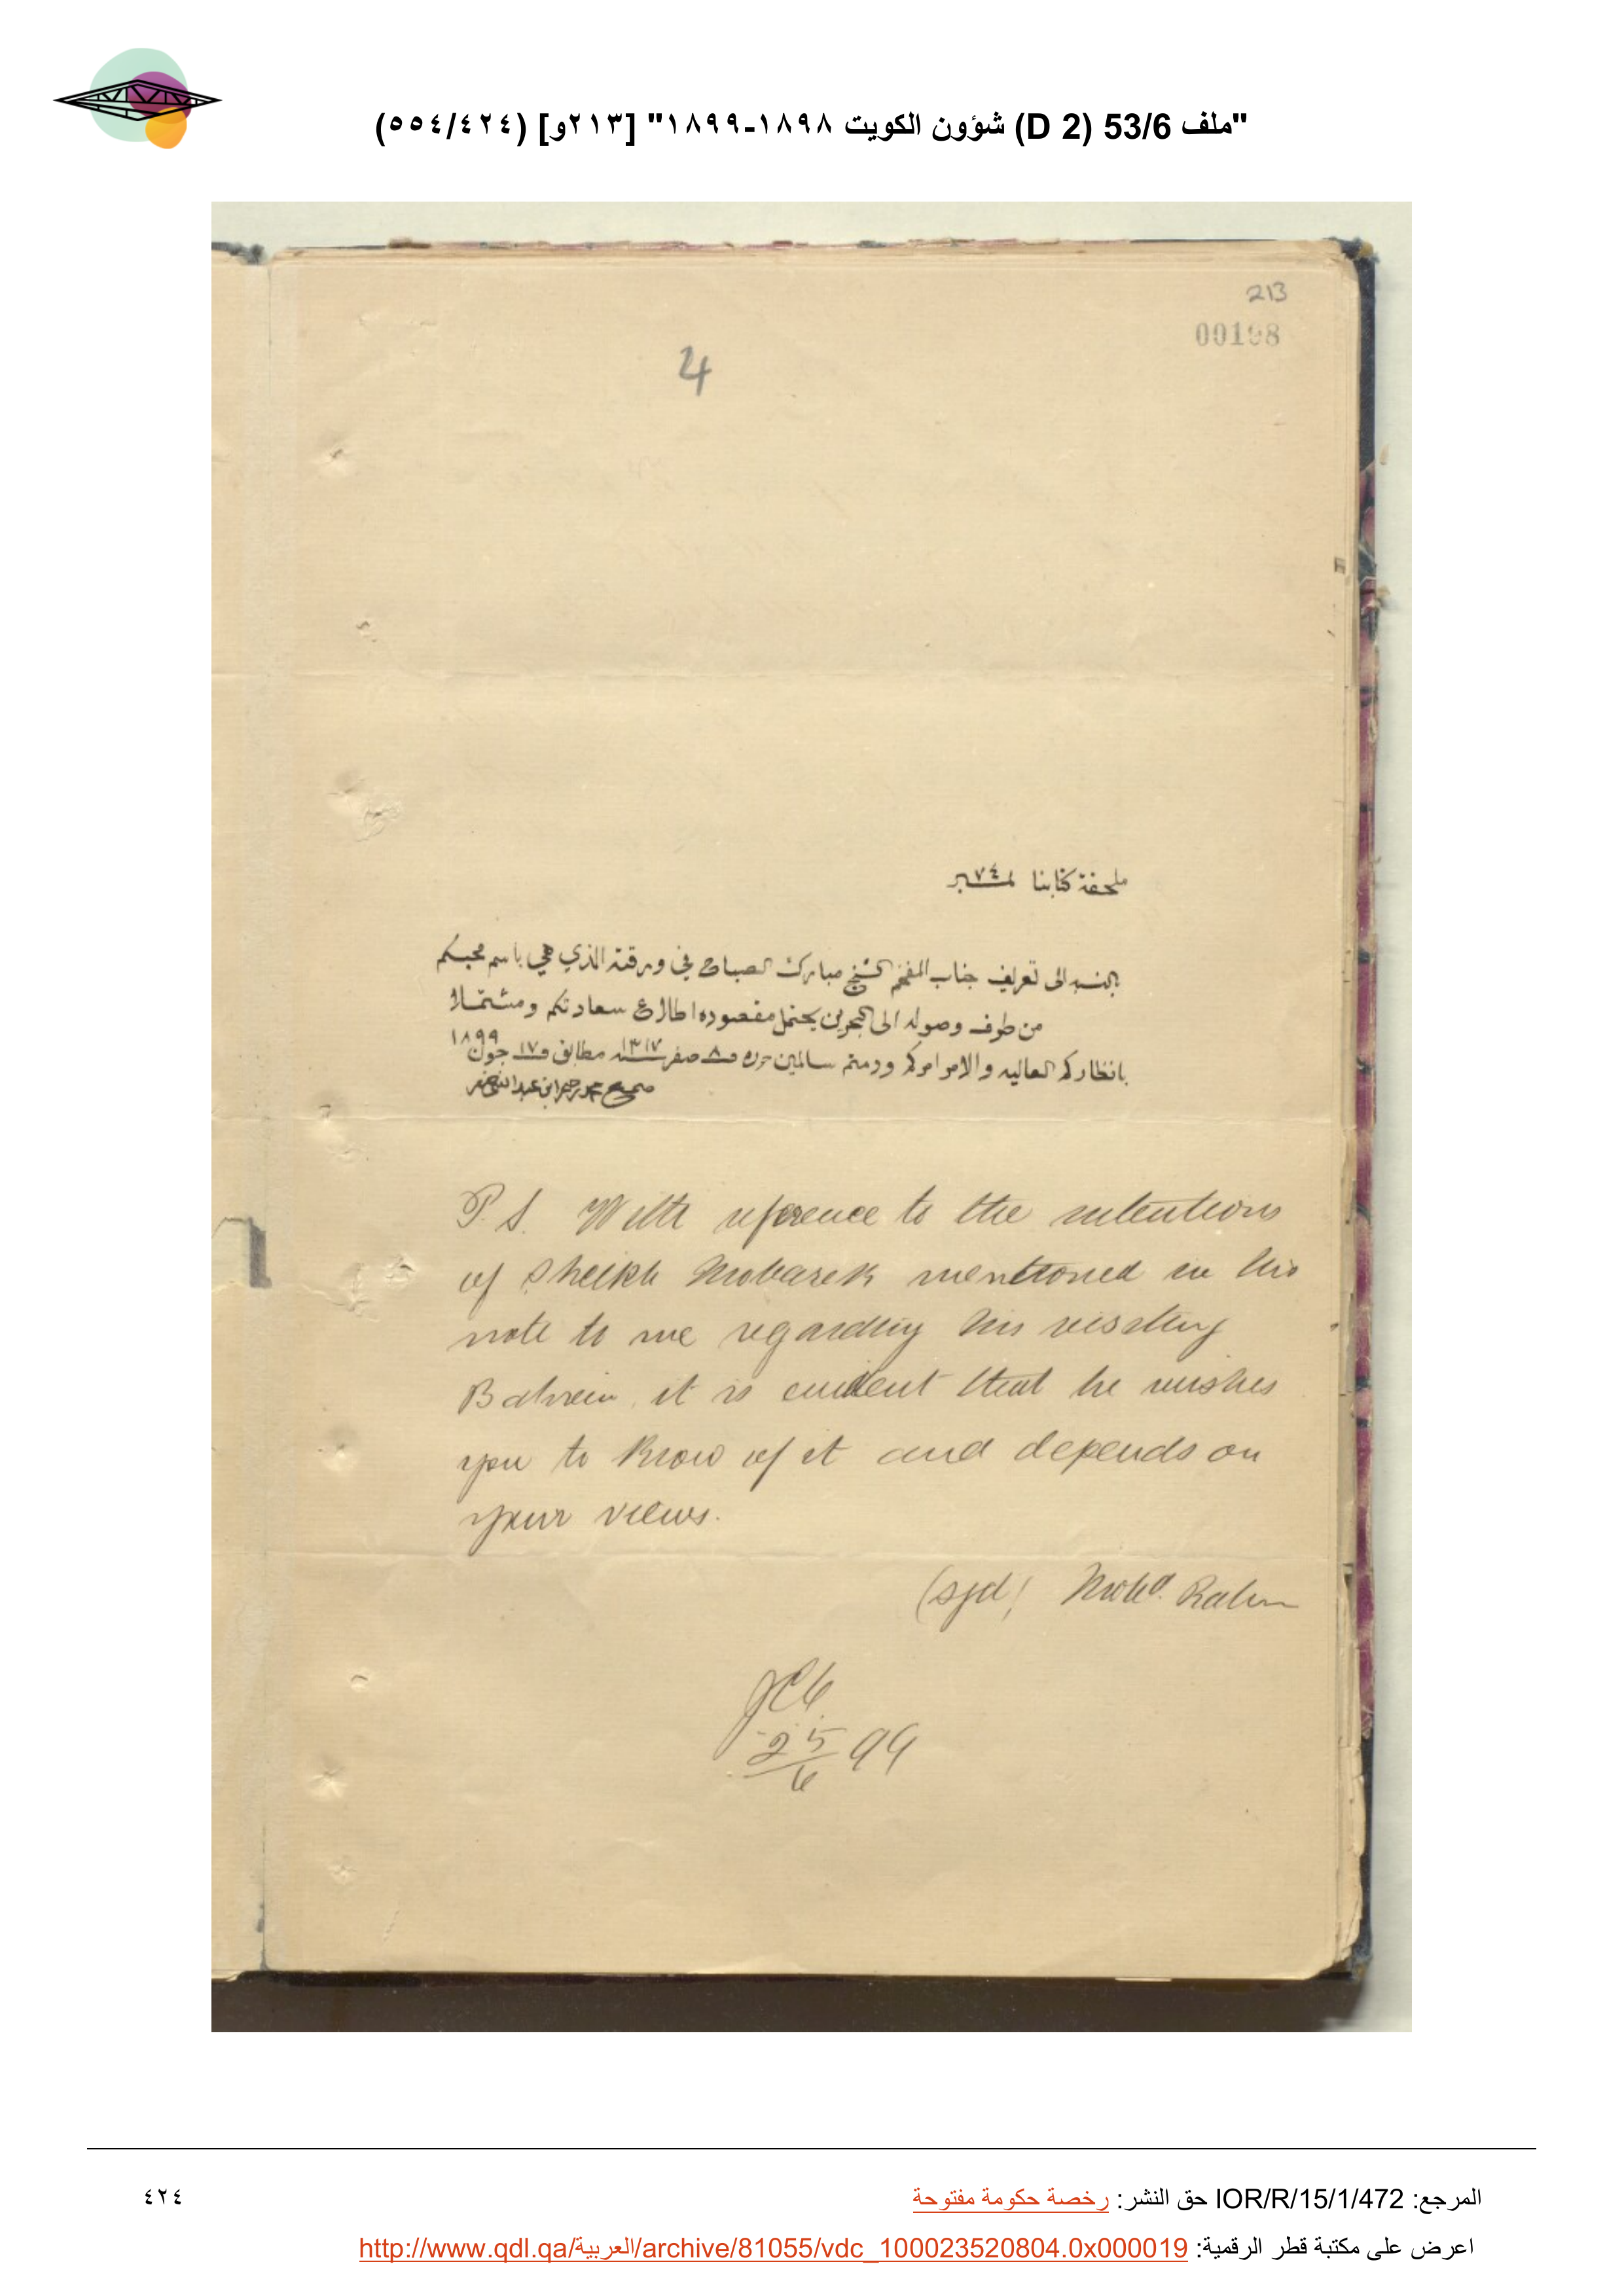 "ملف 53/6 (D 2) شؤون الكويت ١٨٩٨-١٨٩٩" [٢١٣و] (٥٥٤/٤٢٤)
213
00198
4
ملحقة كتابنا لـ٧٤ـنمبر
بالنسبه الى تعريف جناب المفخم الشيخ مبارك الصباح في ورقته الذي هي باسم محبكم
من طرف وصوله الى البحرين يحتمل مقصوده اطلاع سعادتكم ومشتملا
بانظاركم العاليه والامر امركم ودمتم سالمين حرره ٨ صفر ١٣١٧ مطابق ١٧ جون ١٨٩٩
صحيح محمد رحيم ابن عبدالنبي صفر
P.S. With reference to the intentions
of Sheikh Mobarek mentioned in his
note to me regarding his visiting
Bahrein, it is evident that he wishes
you to know of it and depends on
your views.
(sgd) Mohd. Rahim
25/6 99
المرجع: IOR/R/15/1/472 حق النشر: رخصة حكومة مفتوحة
٤٢٤
اعرض على مكتبة قطر الرقمية: http://www.qdl.qa/العربية/archive/81055/vdc_100023520804.0x000019